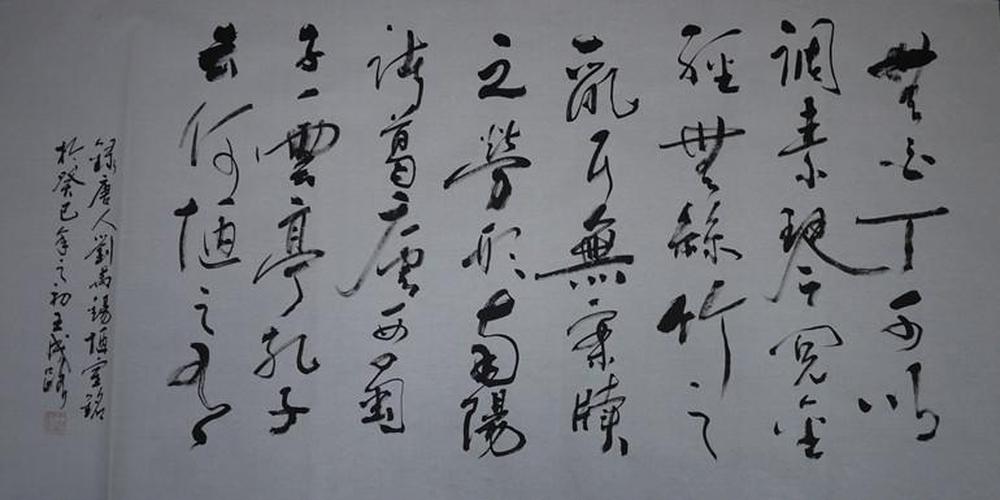 無白丁可以
調素琴閱金
經無絲竹之
亂耳無案牘
之勞形南陽
諸葛廬西蜀
子雲亭孔子
云何陋之有
錄唐人劉禹錫陋室銘
於癸巳年之初王成